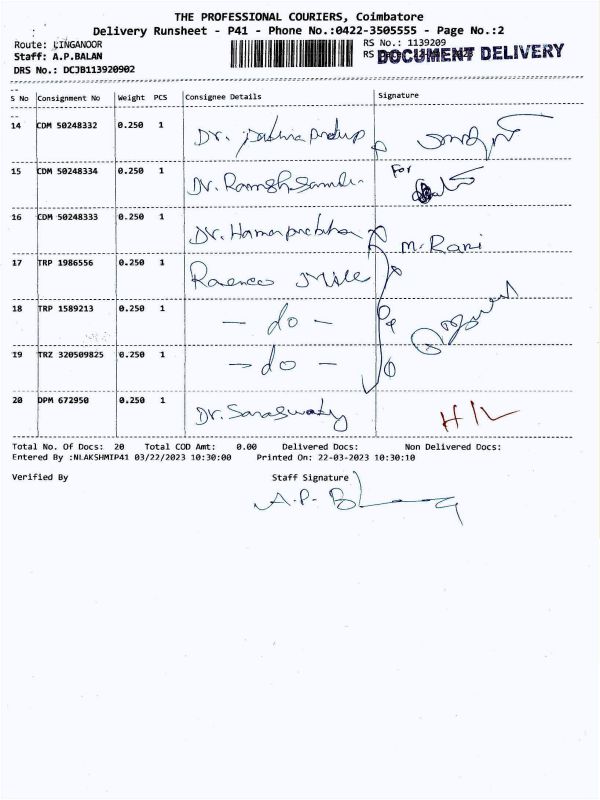 THE PROFESSIONAL COURIERS, Coimbatore
Delivery Runsheet - P41 - Phone No.:0422-3505555 - Page No.:2
Route: LINGANOOR
RS No.: 1139209
Staff: A.P.BALAN
RS
DOCUMENT DELIVERY
DRS No.: DCJB113920902
S No Consignment No Weight PCS Consignee Details Signature
14 CDM 50248332 0.250 1 Dr.
15 CDM 50248334 0.250 1 Dr. For
16 CDM 50248333 0.250 1 Dr. M. Rani
17 TRP 1986556 0.250 1
18 TRP 1589213 0.250 1 - do -
19 TRZ 320509825 0.250 1 - do -
20 DPM 672950 0.250 1 Dr. Saraswathy
Total No. Of Docs: 20 Total COD Amt: 0.00 Delivered Docs: Non Delivered Docs:
Entered By :NLAKSHMIP41 03/22/2023 10:30:00 Printed On: 22-03-2023 10:30:10
Verified By Staff Signature
A.P.